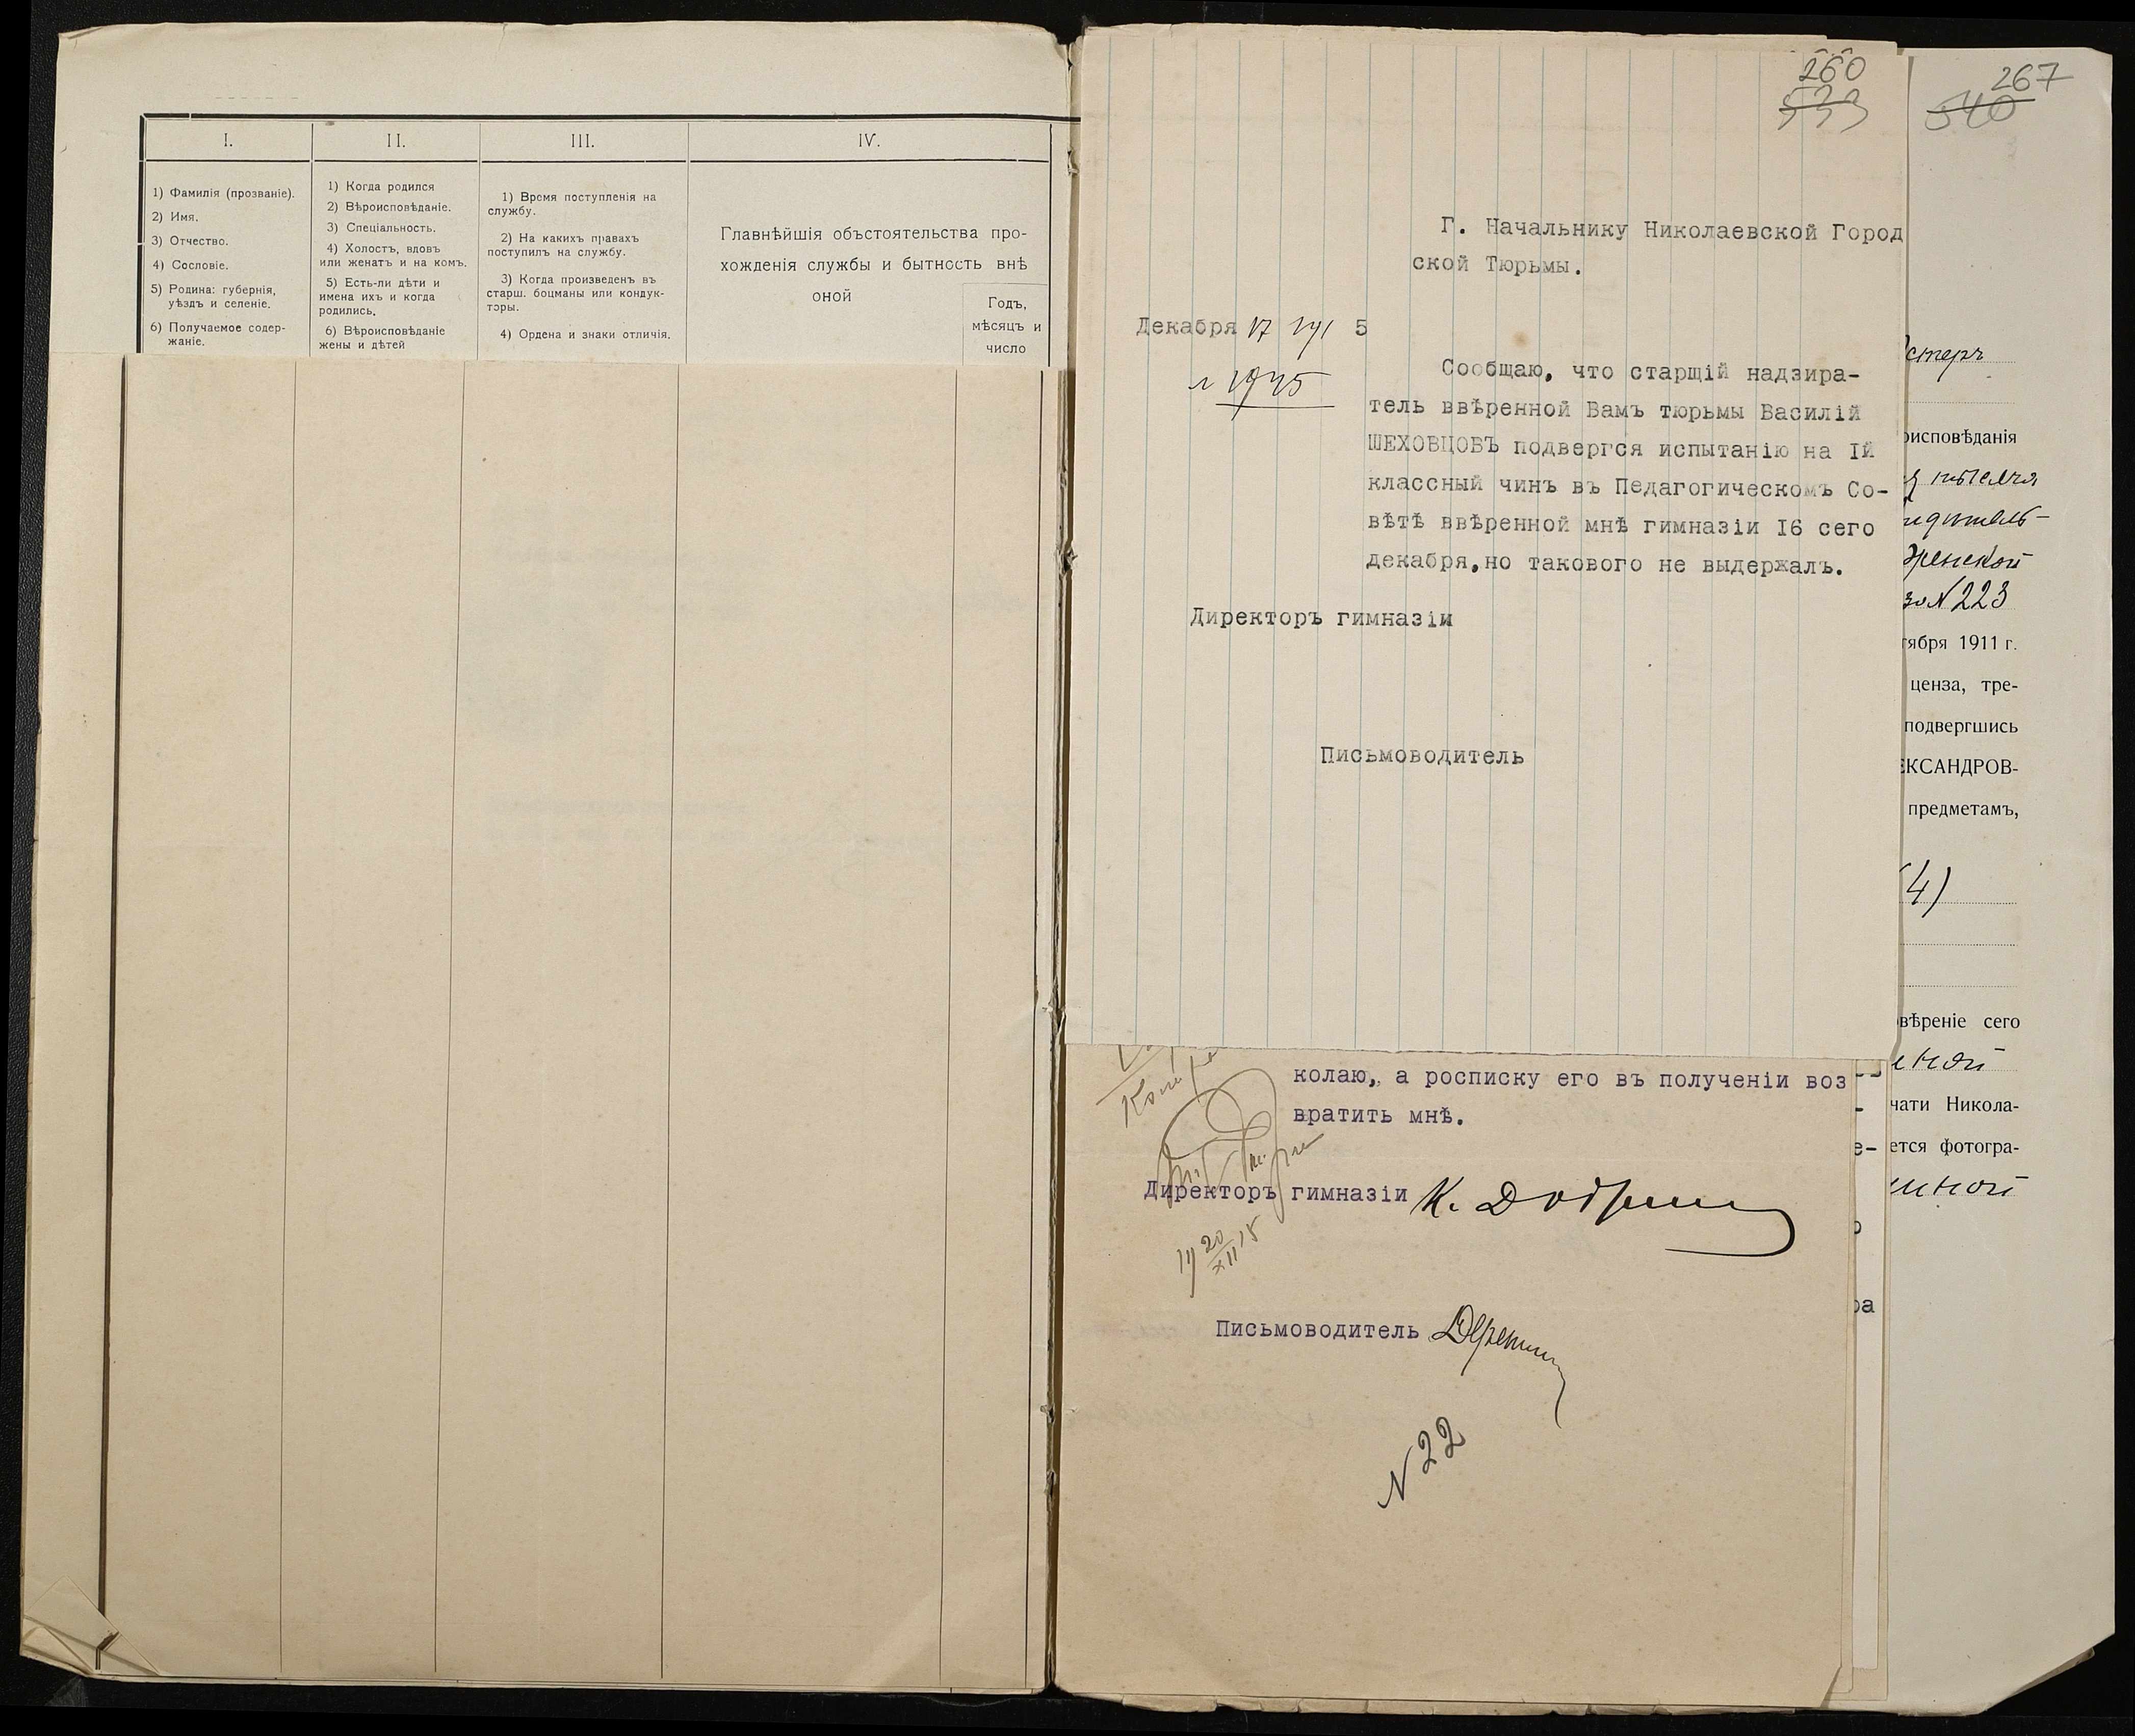 I.
1) Фамилія (прозваніе).
2) Имя.
3) Отчество.
4) Сословіе.
5) Родина: губернія,
уѣздъ и селеніе.
6) Получаемое содер-
жаніе.
II.
1) Когда родился
2) Вѣроисповѣданіе.
3) Спеціальность.
4) Холостъ, вдовъ
или женатъ и на комъ.
5) Есть-ли дѣти и
имена ихъ и когда
родились.
6) Вѣроисповѣданіе
жены и дѣтей
III.
1) Время поступленія на
службу.
2) На какихъ правахъ
поступилъ на службу.
3) Когда произведенъ въ
старш. боцманы или кондук-
торы.
4) Ордена и знаки отличія.
IV.
Главнѣйшія объстоятельства про-
хожденія службы и бытность внѣ
оной
Годъ,
мѣсяцъ и
число
260
533
Г. Начальнику Николаевской Город
ской Тюрьмы.
Декабря 17 191 5
№ 1945
Сообщаю, что старщій надзира-
тель ввѣренной Вамъ тюрьмы Василій
ШЕХОВЦОВЪ подвергся испытанію на Iй
классный чинъ въ Педагогическомъ Со-
вѣтѣ ввѣренной мнѣ гимназіи I6 сего
декабря,но такового не выдержалъ.
Директоръ гимназіи
Письмоводитель
колаю,, а росписку его въ полученіи воз
вратить мнѣ.
Директоръ гимназіи К.
20
XII 15
Письмоводитель
N 22
267
540
стеръ
оисповѣданія
женской
за N 223
тября 1911 г.
ценза, тре-
подвергшись
ЕКСАНДРОВ-
предметамъ,
(4)
вѣреніе сего
ной
чати Никола-
е- ется фотогра-
нной
о
ра